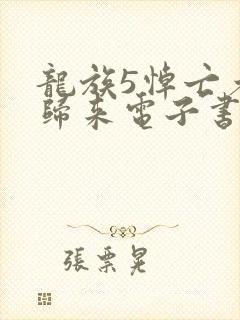 龍族5悼亡
歸來電子書
張栗晃